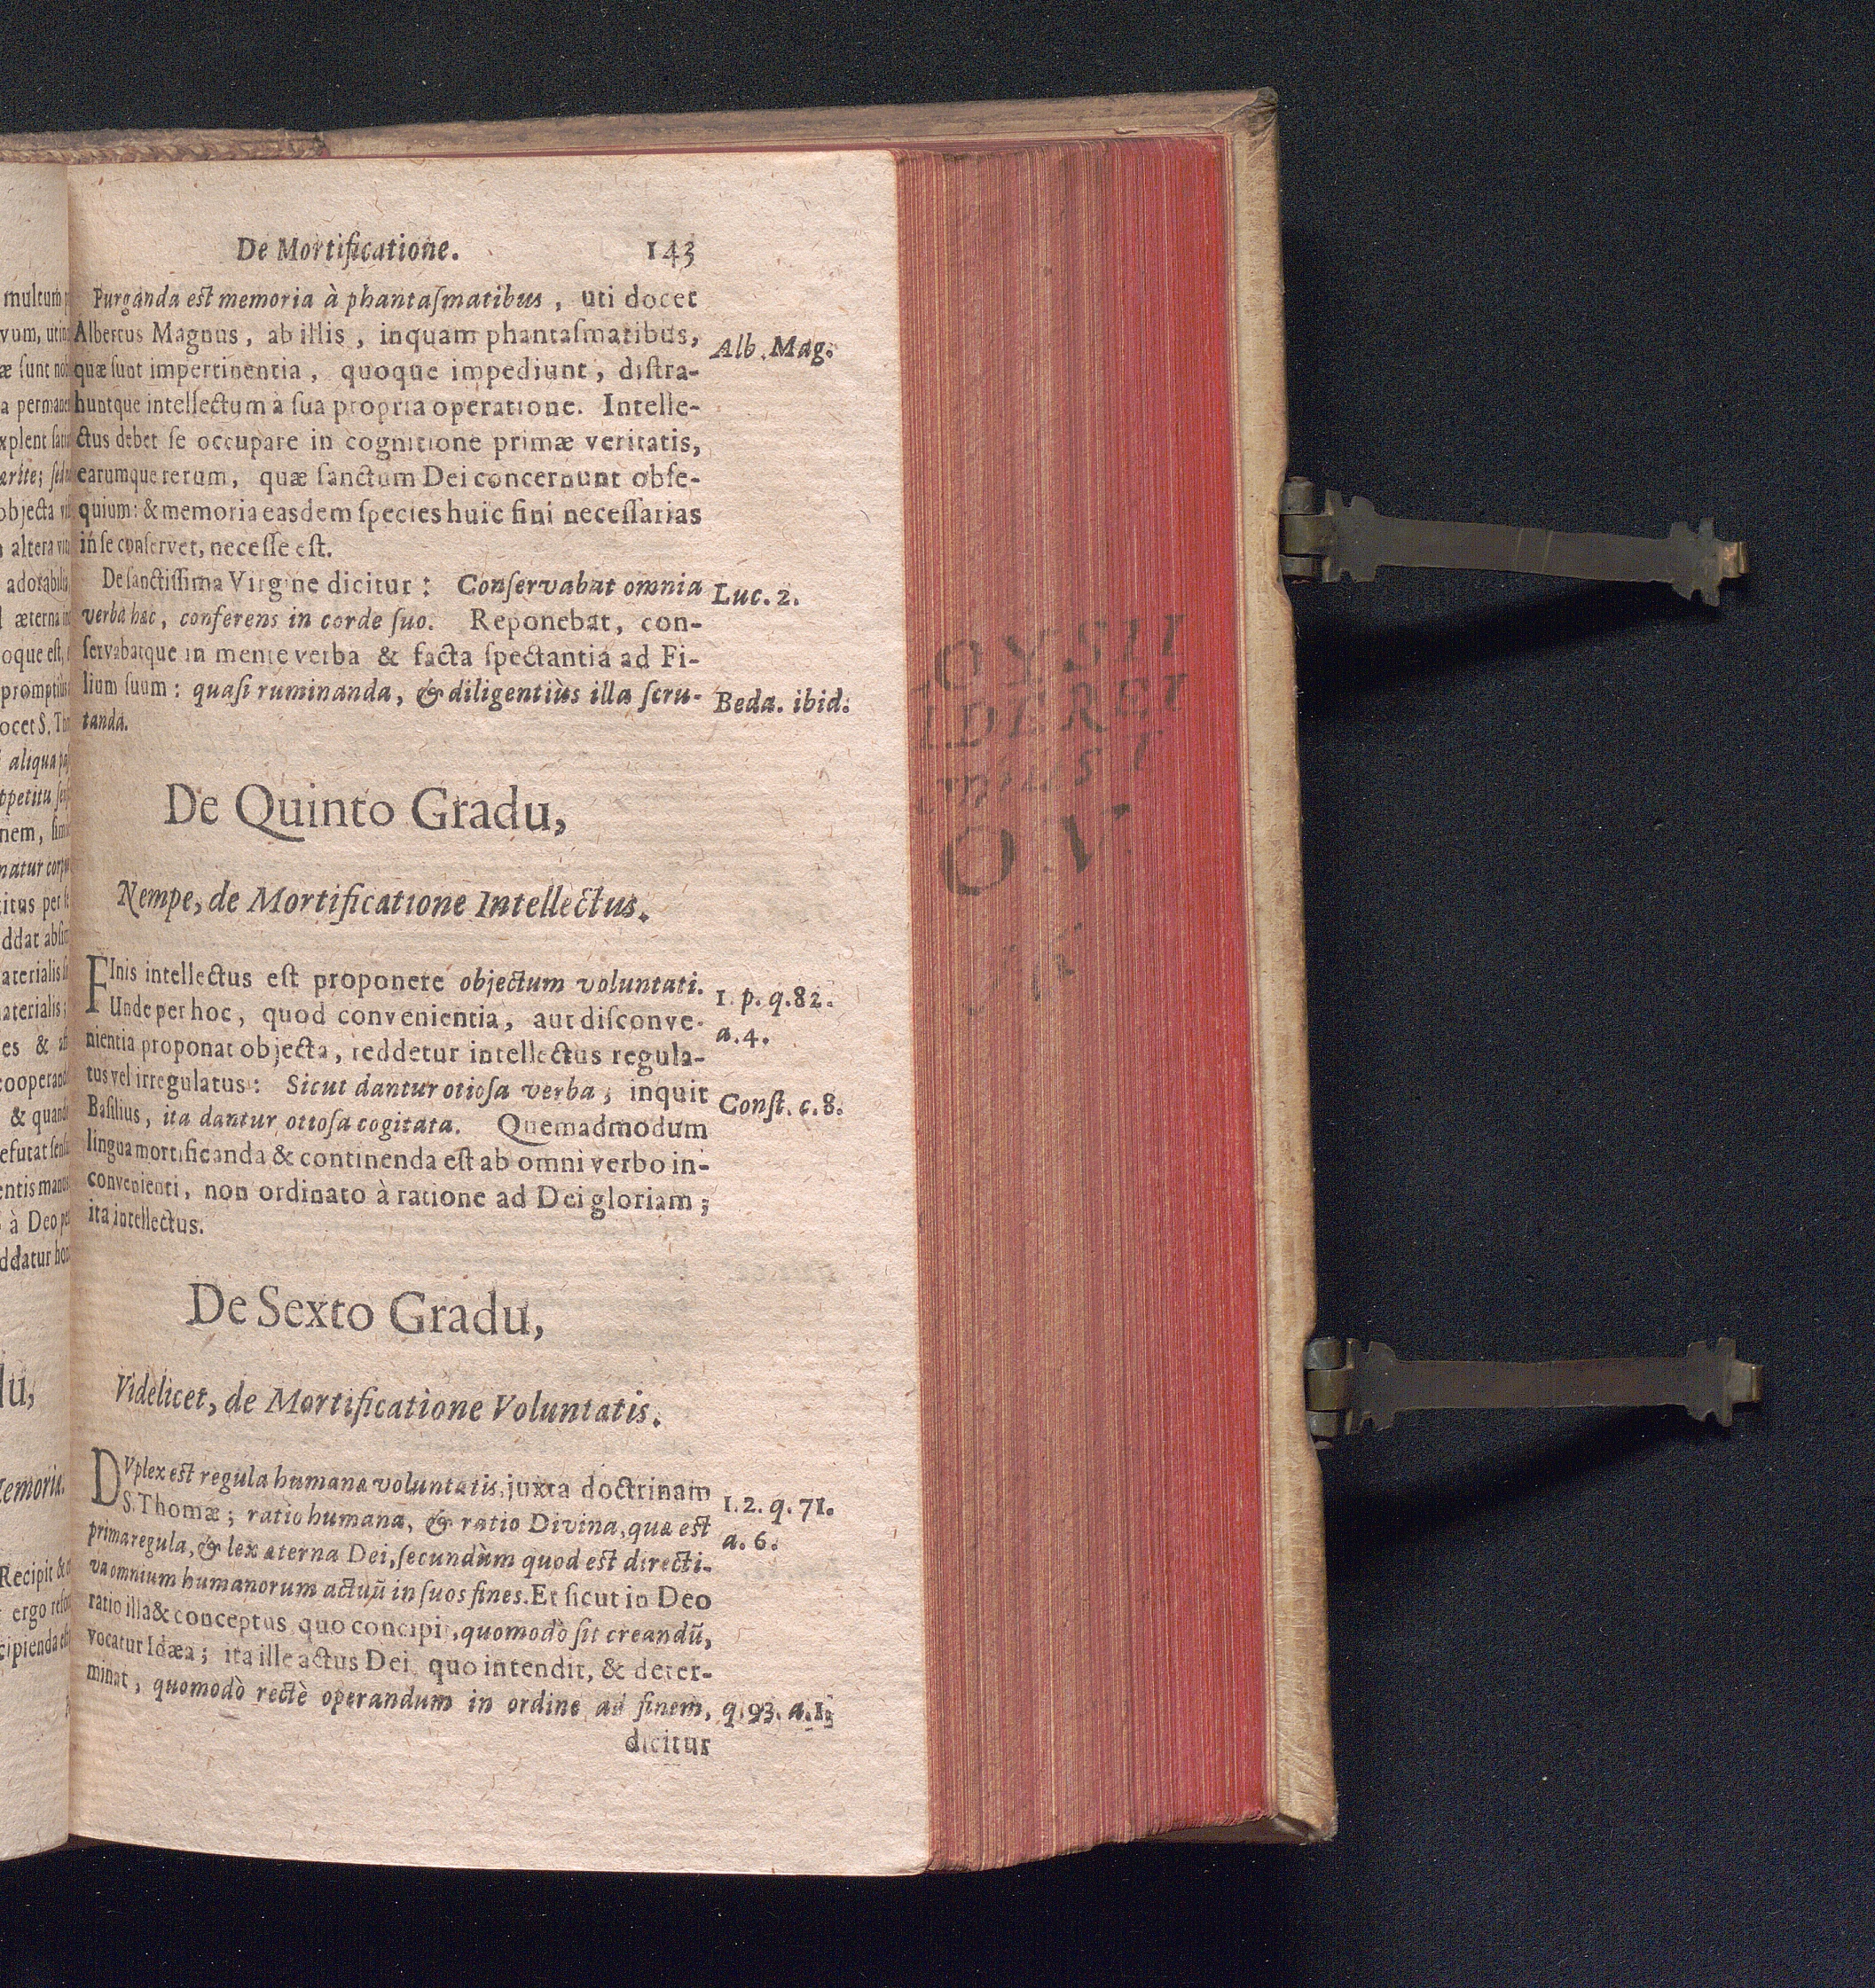 De Mortificatione. 143
Purganda est memoria à phantaſmatibus, uti docet
Albertus Magnus, ab illis, inquam phantaſmatibus,
Alb. Mag.
quæ ſunt impertinentia, quoque impediunt, diſtra-
huntque intellectum à ſua propria operatione. Intelle-
ctus debet ſe occupare in cognitione primæ veritatis,
earumque rerum, quæ ſanctum Dei concernunt obſe-
quium: & memoria easdem ſpecies huic fini neceſſarias
in ſe conſervet, neceſſe eſt.
De ſanctiſſima Virgine dicitur: Conſervabat omnia
Luc. 2.
verba hæc, conferens in corde ſuo. Reponebat, con-
ſervabatque in mente verba & facta ſpectantia ad Fi-
lium ſuum: quaſi ruminanda, & diligentiùs illa ſcru-
Beda. ibid.
tanda.
De Quinto Gradu,
Nempe, de Mortificatione Intellectus.
FInis intellectus eſt proponere objectum voluntati.
1. p. q. 82.
Unde per hoc, quod convenientia, aut diſconve-
a. 4.
nientia proponat objecta, reddetur intellectus regula-
tus vel irregulatus: Sicut dantur otioſa verba, inquit
Conſt. c. 8.
Baſilius, ita dantur otioſa cogitata. Quemadmodum
lingua mortificanda & continenda eſt ab omni verbo in-
convenienti, non ordinato à ratione ad Dei gloriam;
ita intellectus.
De Sexto Gradu,
Videlicet, de Mortificatione Voluntatis.
DVplex est regula humana voluntatis, juxta doctrinam
1. 2. q. 71.
S. Thomæ; ratio humana, & ratio Divina, quæ est
a. 6.
prima regula, & lex æterna Dei, ſecundùm quod est directi-
va omnium humanorum actuū in ſuos fines. Et ſicut in Deo
ratio illa & conceptus quo concipit, quomodò ſit creandū,
vocatur Idæa; ita ille actus Dei, quo intendit, & deter-
minat, quomodò rectè operandum in ordine ad finem,
q. 93. a. 1.
dicitur